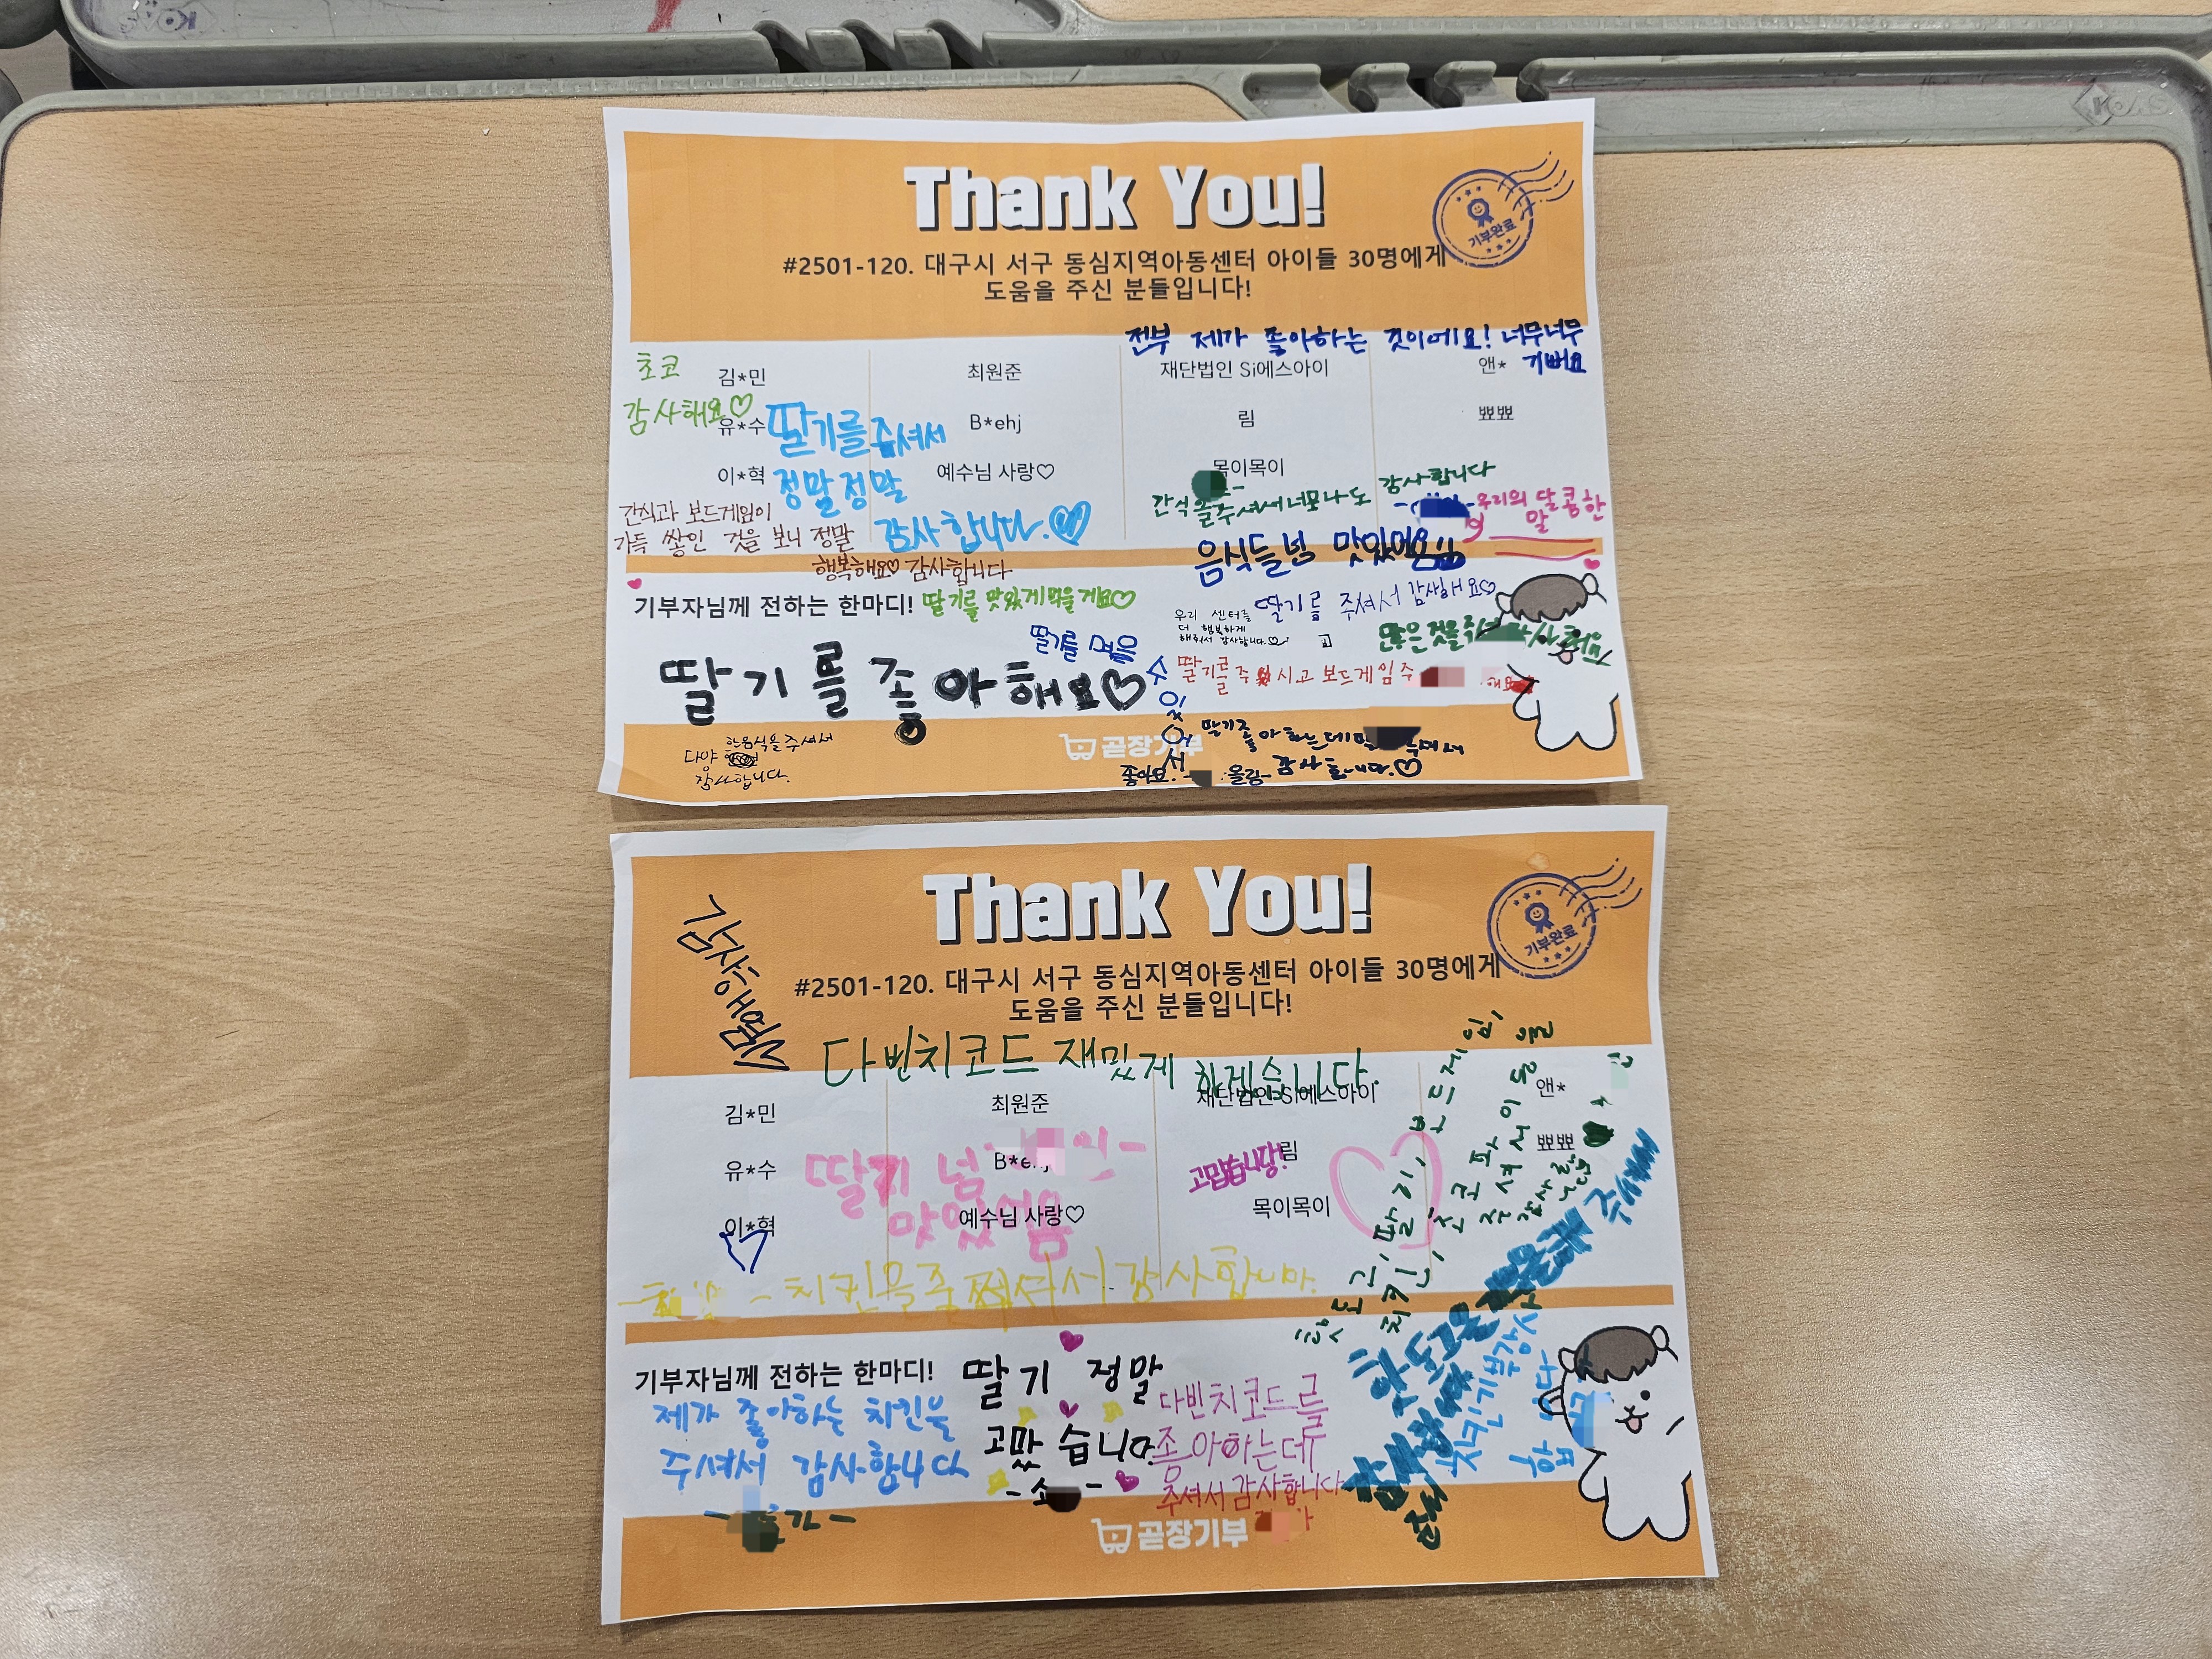 Thank You!
기부완료
#2501-120. 대구시 서구 동심지역아동센터 아이들 30명에게
도움을 주신 분들입니다!
전부 제가 좋아하는 것이에요! 너무너무
기뻐요
초코
감사해요♡
김*민 최원준 재단법인 Si에스아이 앤*
유*수 B*ehj 림 뾰뾰
이*혁 예수님 사랑♡ 목이목이
딸기를 주셔서
정말정말
감사합니다.♡
간식과 보드게임이
가득 쌓인 것을 보니 정말
행복해요♡ 감사합니다
간식을주셔서너무나도 감사합니다
우리의 달콤한
말
음식들넘 맛있어요
기부자님께 전하는 한마디!
딸기를 맛있게먹을게요♡
딸기를 주셔서 감사해요♡
우리 센터를
더 행복하게
해줘서 감사합니다.♡
딸기를 먹을
수
있
어
서
좋아요.
올림-
딸기를좋아해요♡
많은것을
딸기를주시고 보드게임주
해요
딸기좋아하는데
감사합니다.♡
다양한음식을주셔서
감사합니다.
곧장기부
Thank You!
기부완료
#2501-120. 대구시 서구 동심지역아동센터 아이들 30명에게
도움을 주신 분들입니다!
다빈치코드 재밌게 하겠습니다.
김*민 최원준 재단법인 Si에스아이 앤*
유*수 림 뾰뾰
이*혁 예수님 사랑♡ 목이목이
딸기 넘
맛있었음
고맙습니당!
핫도그, 딸기, 보드게임,
치킨, 초코파이등을
주셔서
감사합니다
-치킨을주셔서감사합니다.
기부자님께 전하는 한마디!
제가 좋아하는 치킨을
주셔서 감사합니다
딸기 정말
고맙습니다.
다빈치코드를
좋아하는데
주셔서 감사합니다
핫도그
치킨기부감사
곧장기부